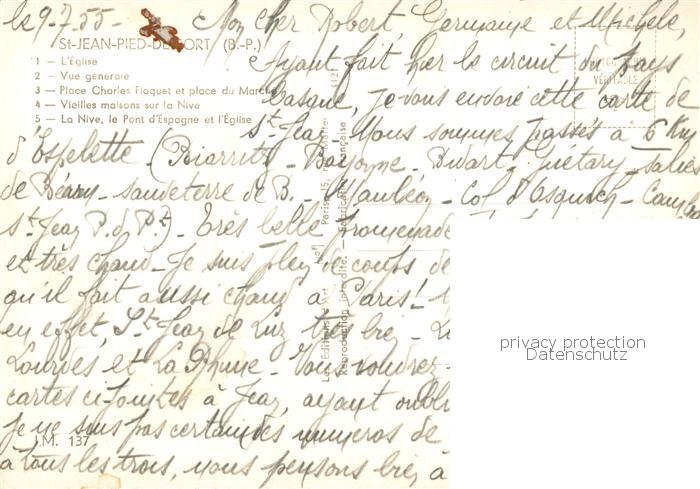 le 9-7-55- Mon cher Robert, Germaine et Michèle,
St-JEAN-PIED-DE-PORT (B.-P.)
1 – L'Église
2 – Vue générale
3 – Place Charles Floquet et place du Marché
4 – Vieilles maisons sur la Nive
5 – La Nive, le Pont d'Espagne et l'Église
Ayant fait hier le circuit du pays
basque, je vous envoie cette carte de
St Jean. Nous sommes passés à 6 Kms
d'Espelette (Biarritz - Bayonne - Bidart - Guétary - Salies
de Béarn - Sauveterre de B. - Mauléon - Col d'Osquich - Cambo
St Jean P. d. Pt) - Très belle promenade
et très chaud - Je suis plein de coups de
qu'il fait aussi chaud à Paris!
en effet, St Jean de Luz très bien -
Lourdes et La Rhune - Vous voudrez
cartes ci-jointes à Jean, ayant oubli
je ne suis pas certain des numéros de
I.M. 137
à tous les trois, nous pensons bien à
Les Editions d'Art
Paris-15,
Reproduction interdite. – Fabrication Française
privacy protection
Datenschutz